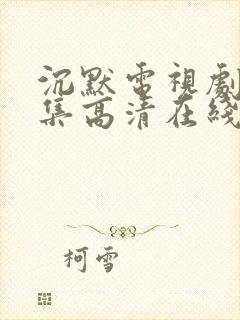 沉默電視劇
集高清在綫
柯雪